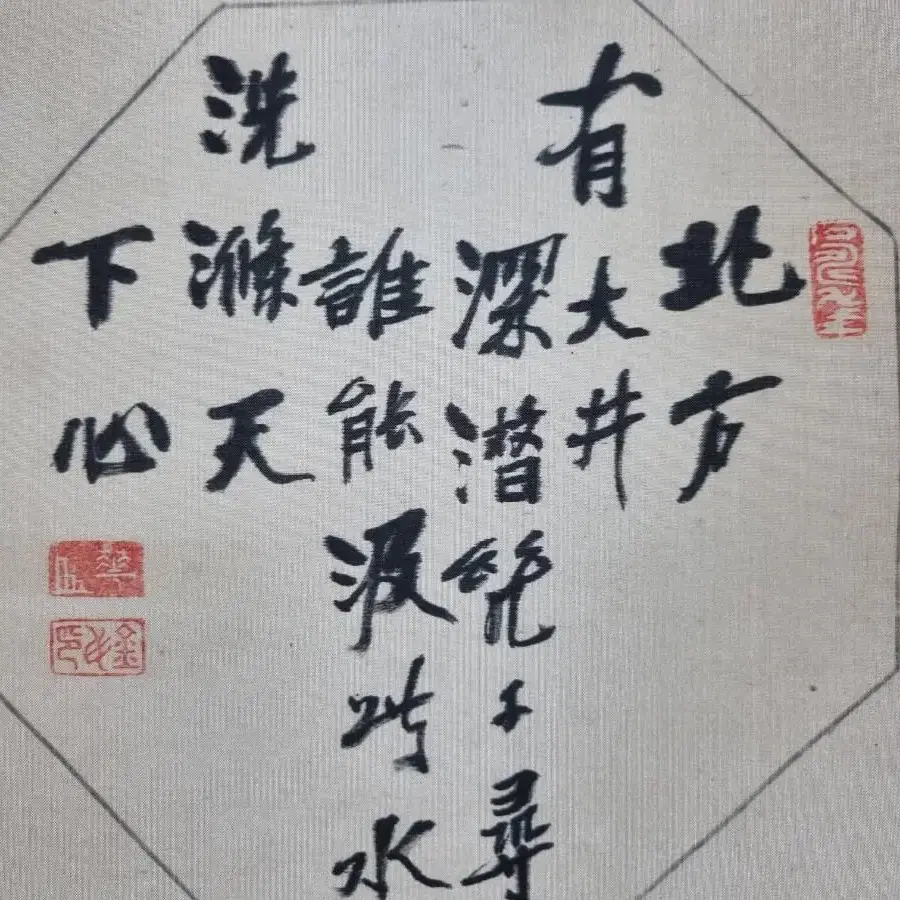 北方
有大井
深潛幾千尋
誰能汲此水
洗滌天
下心